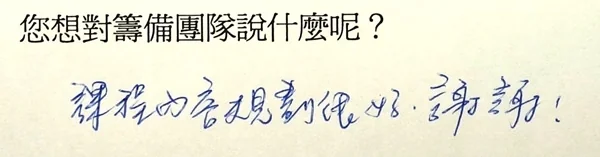 您想對籌備團隊說什麼呢？
課程內容規劃很好，謝謝！